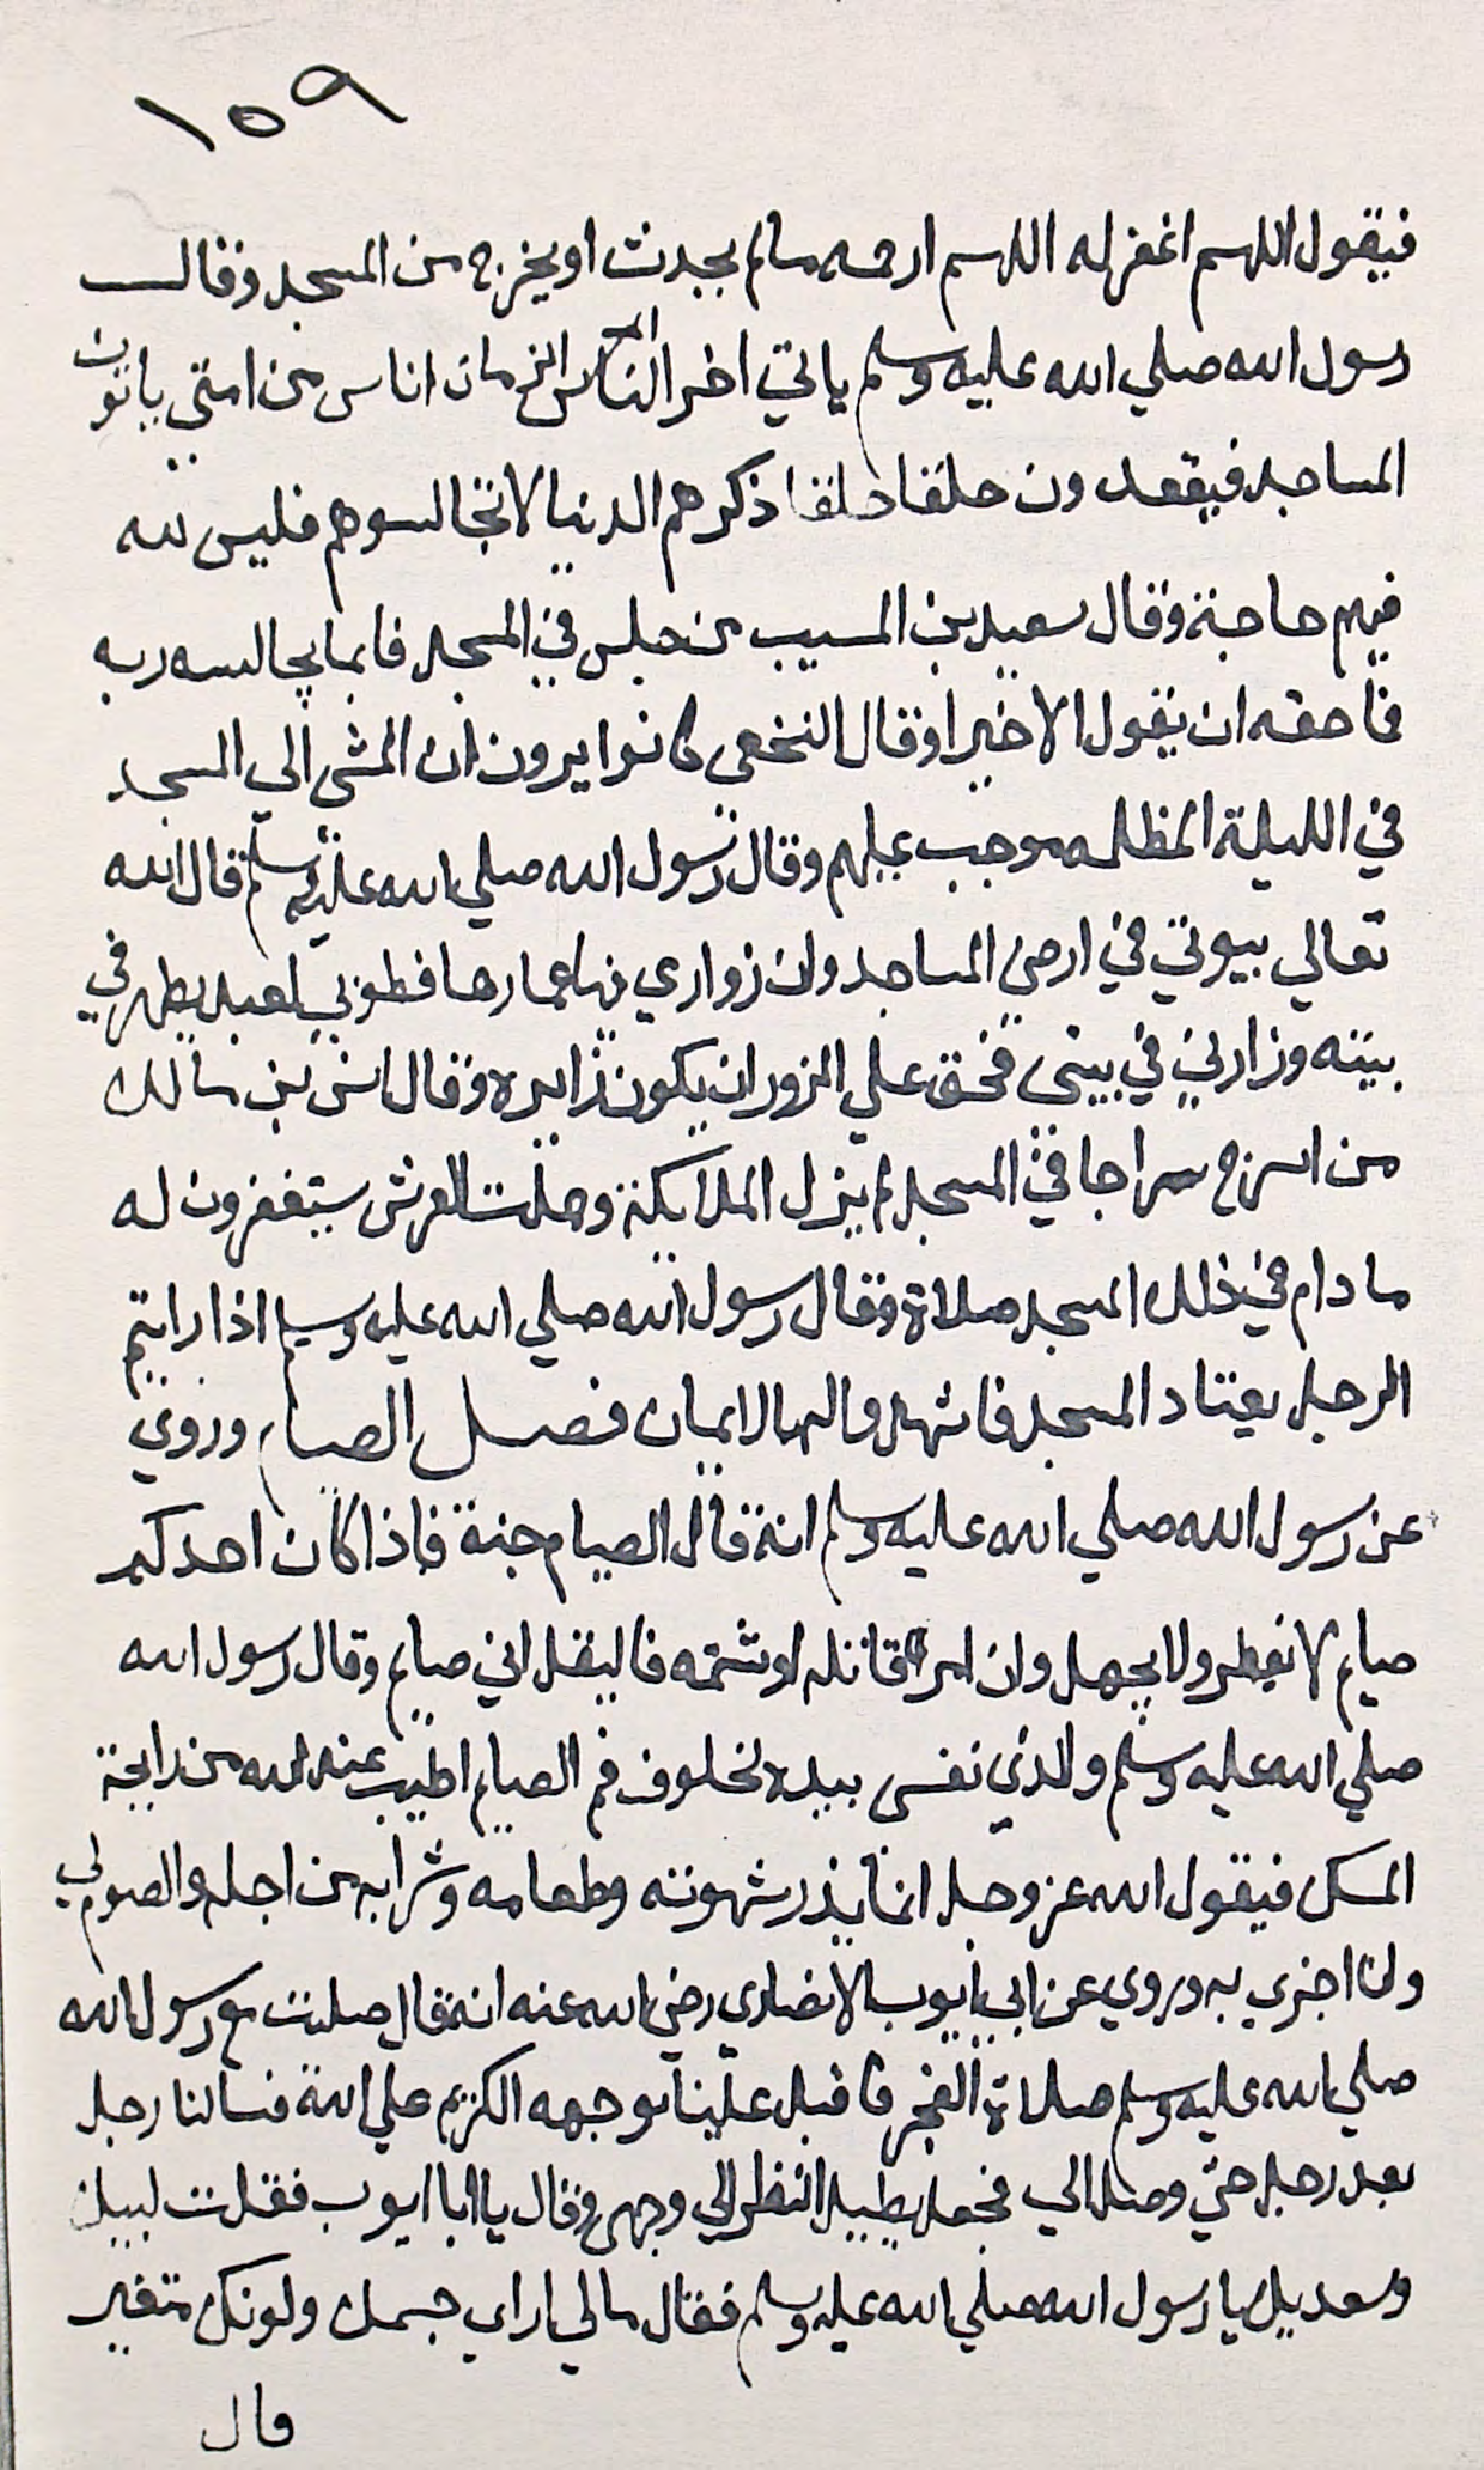 ١٥٩
فيقول اللهم اغفر له اللهم ارحمه مالم يحدث او يخرج من المسجد وقال
رسول الله صلي الله عليه وسلم ياتي اخر الزمان اناس من امتي ياتون
المساجد فيقعدون حلقا حلقا ذكرهم الدنيا لا تجالسوهم فليس لله
فيهم حاجة وقال سعيد بن المسيب من جلس في المسجد فانما يجالسه ربه
فما حقه ان يقول الا خيرا وقال النخعي كانوا يرون ان المشي الي المسجد
في الليلة المظلمه موجب وقال رسول الله صلي الله عليه وسلم قال الله
تعالي بيوتي في ارضي المساجد وان زواري فيها عمارها فطوبي لعبد يطهر في
بيته وزارني في بيتي فحق علي المزور ان يكون زايره وقال انس بن مالك
من اسرج سراجا في المسجد لم يزل الملايكة وحملت العرش يستغفرون له
ما دام في ذلك المسجد صلاة وقال رسول الله صلي الله عليه وسلم اذا رايتم
الرجل يعتاد المسجد فاشهدوا له بالايمان فصل الصيام وروي
عن رسول الله صلي الله عليه وسلم انه قال الصيام جنة فاذا كان احدكم
صايم لا يفطر ولا يجهل وان امرا قاتله او شتمه فاليقل اني صايم وقال رسول الله
صلي الله عليه وسلم والذي نفسي بيده لخلوف فم الصايم اطيب عند الله من رايحة
المسك فيقول الله عز وجل انما يذر شهوته وطعامه وشرابه من اجلي والصوم لي
وانا اجزي به وروي عن ابي ايوب الانصاري رضي الله عنه انه قال صليت مع رسول الله
صلي الله عليه وسلم صلاة الفجر فاقبل علينا بوجهه الكريم علي الله فسالنا رجل
بعد رجل حتي وصل الي فجعل يطيل النظر الي وجهي وقال يا ابا ايوب فقلت لبيك
وسعديك يا رسول الله صلي الله عليه وسلم فقال مالي اراي جسمك ولونك متغير
قال